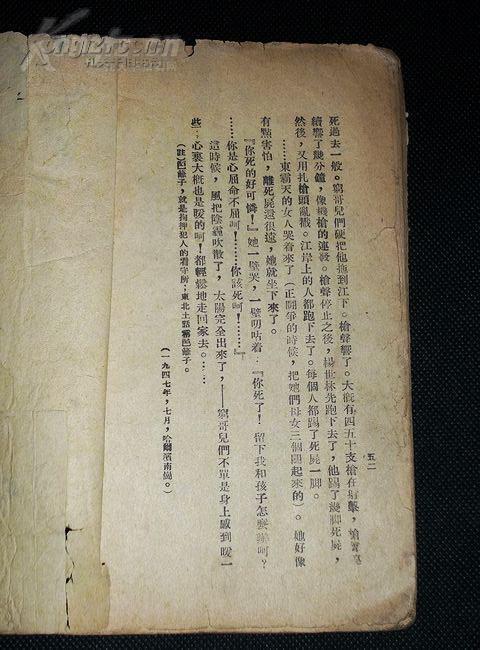 五二
死過去一般。窮哥兒們硬把他拖到江下。槍聲響了。大概有四五十支槍在射擊，槍聲
續響了幾分鐘，像機槍的連發。槍聲停止之後，楊世林先跑下去了，他踢了幾脚死屍，
然後，又用扎槍頭亂戳。江岸上的人都跑下去了。每個人都踢了死屍一脚。
……東霸天的女人哭着來了（正鬪爭的時候，把她們母女三個關起來的）。她好像
有點害怕，離死屍還很遠，她就坐下來了。
『你死的好可憐！』她一壁哭，一壁叨咕着：『你死了！留下我和孩子怎麼辦呵？
……你是心屈命不屈呵！……你該死呵！……』
這時候，風把陰霾吹散了，太陽完全出來了，——窮哥兒們不單是身上感到暖一
些，心裏大概也是暖的呵！都輕鬆地走回家去。……
（一九四七年，七月，哈爾濱南崗。）
（註）笆籬子，就是拘押犯人的看守所；東北土話
Kongfz.com
孔夫子旧书网